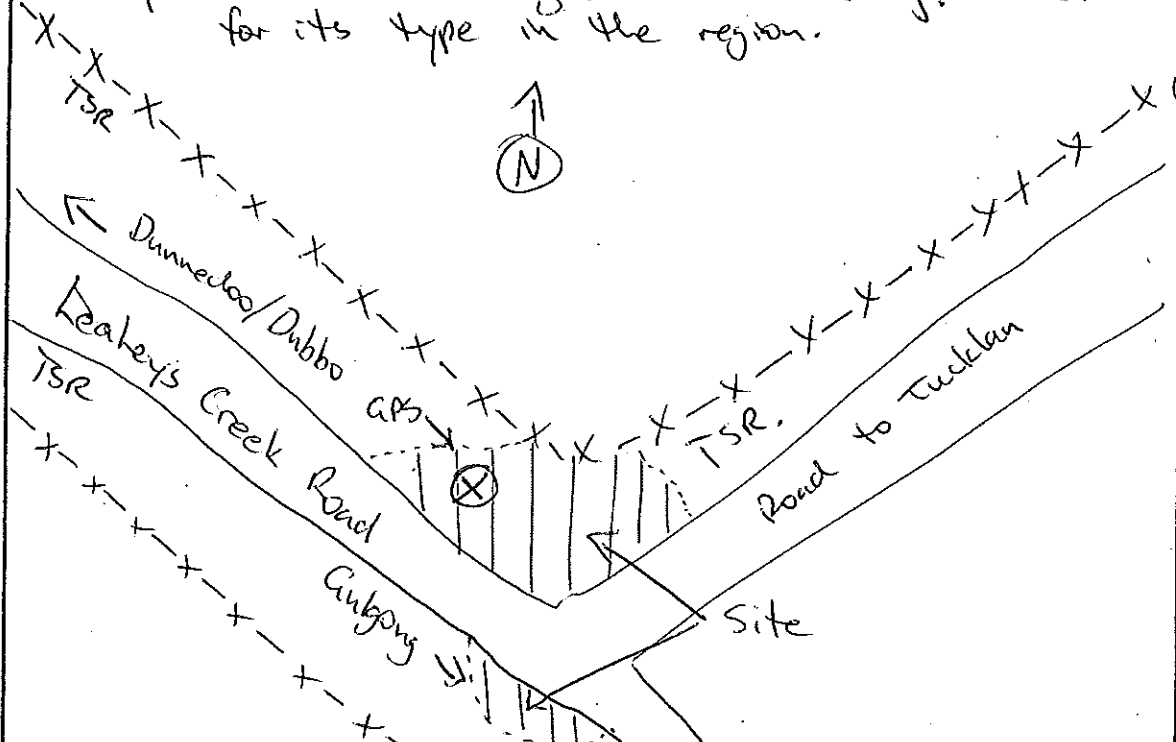 for its type in the region.
TSR
N
Dunnedoo/Dubbo
Leahey's Creek Road
TSR
GPS
TSR.
Road to Tucklan
Gulgong
Site